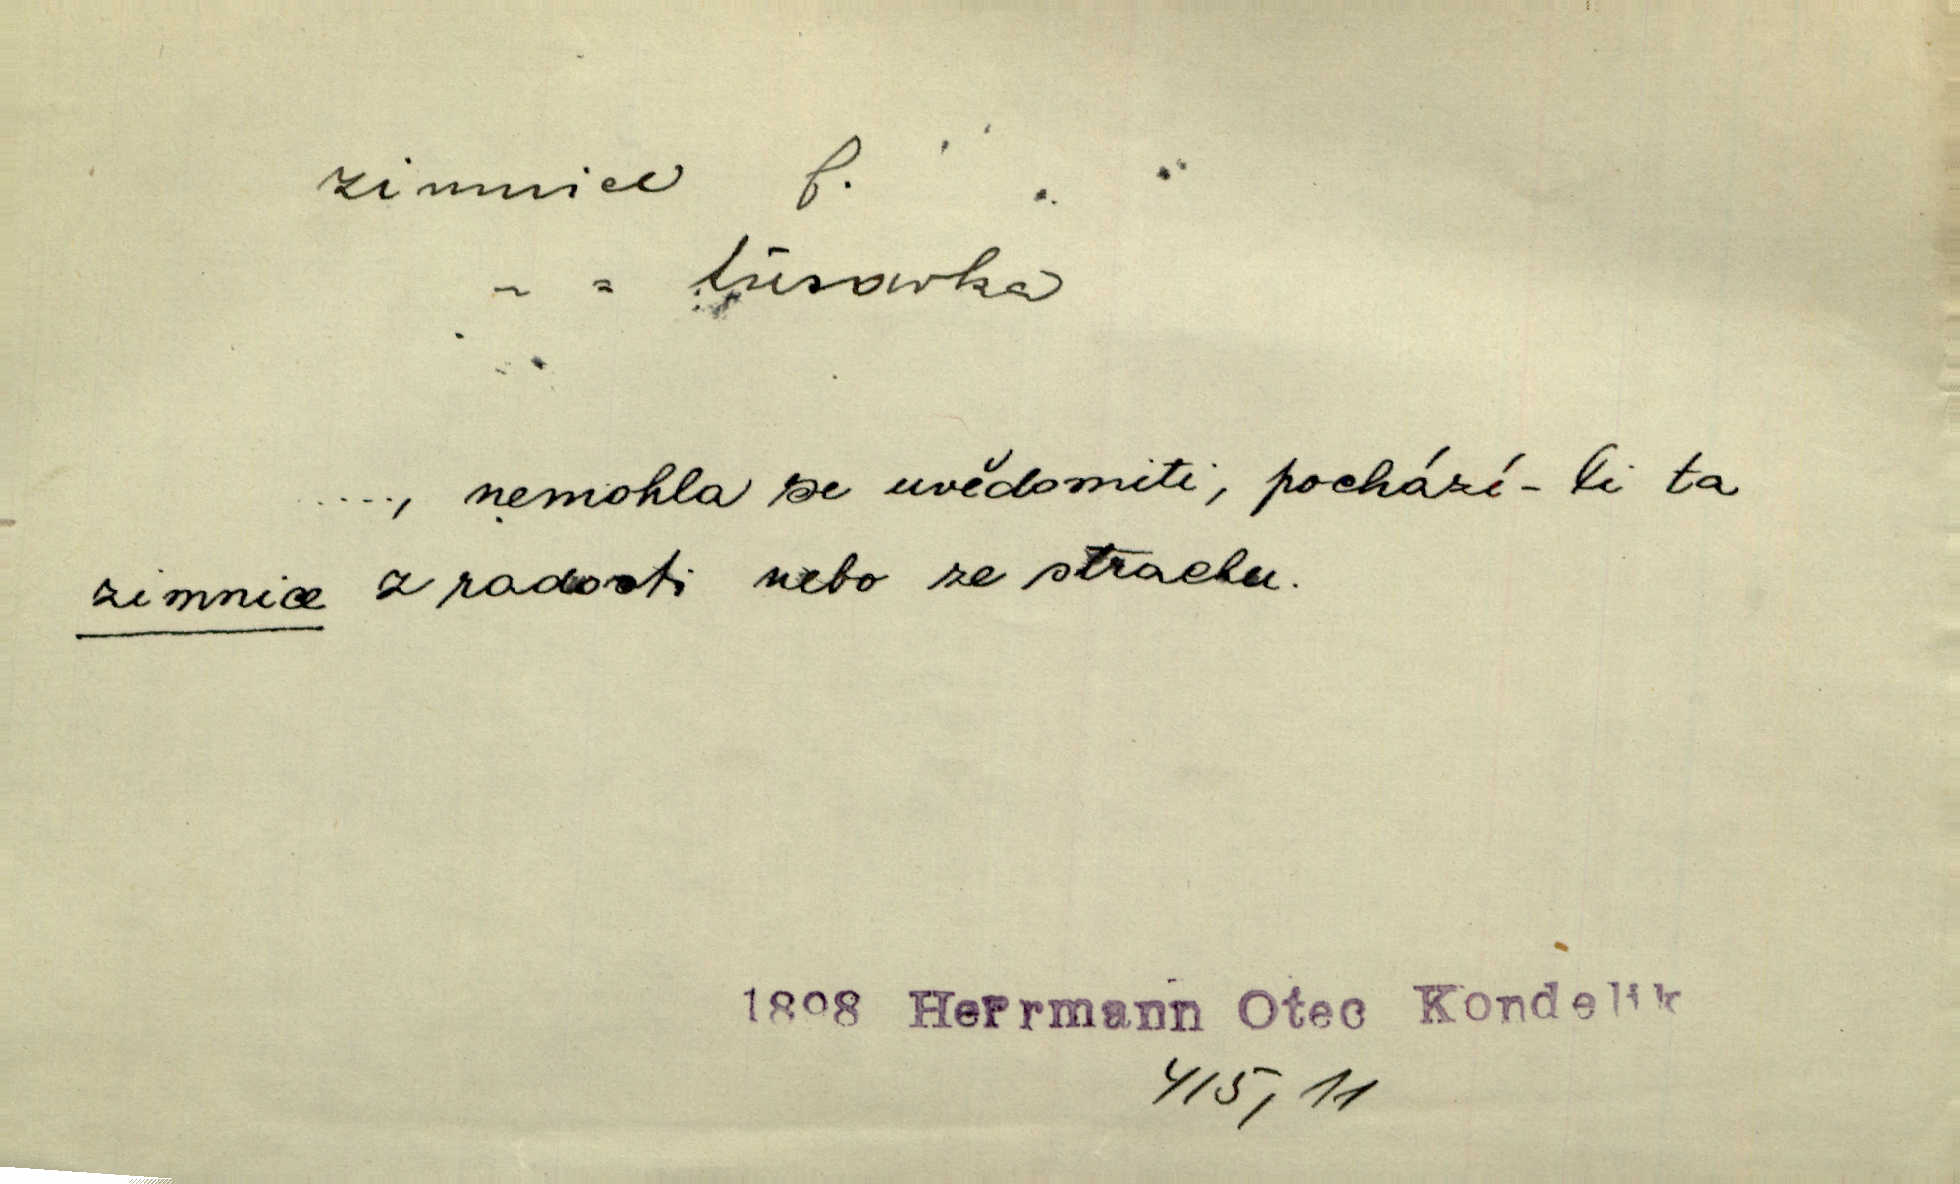 zimnice f.
- = třesavka
....., nemohla se uvědomiti, pochází-li ta
zimnice z radosti nebo ze strachu.
1898 Herrmann Otec Kondelik
415, 11